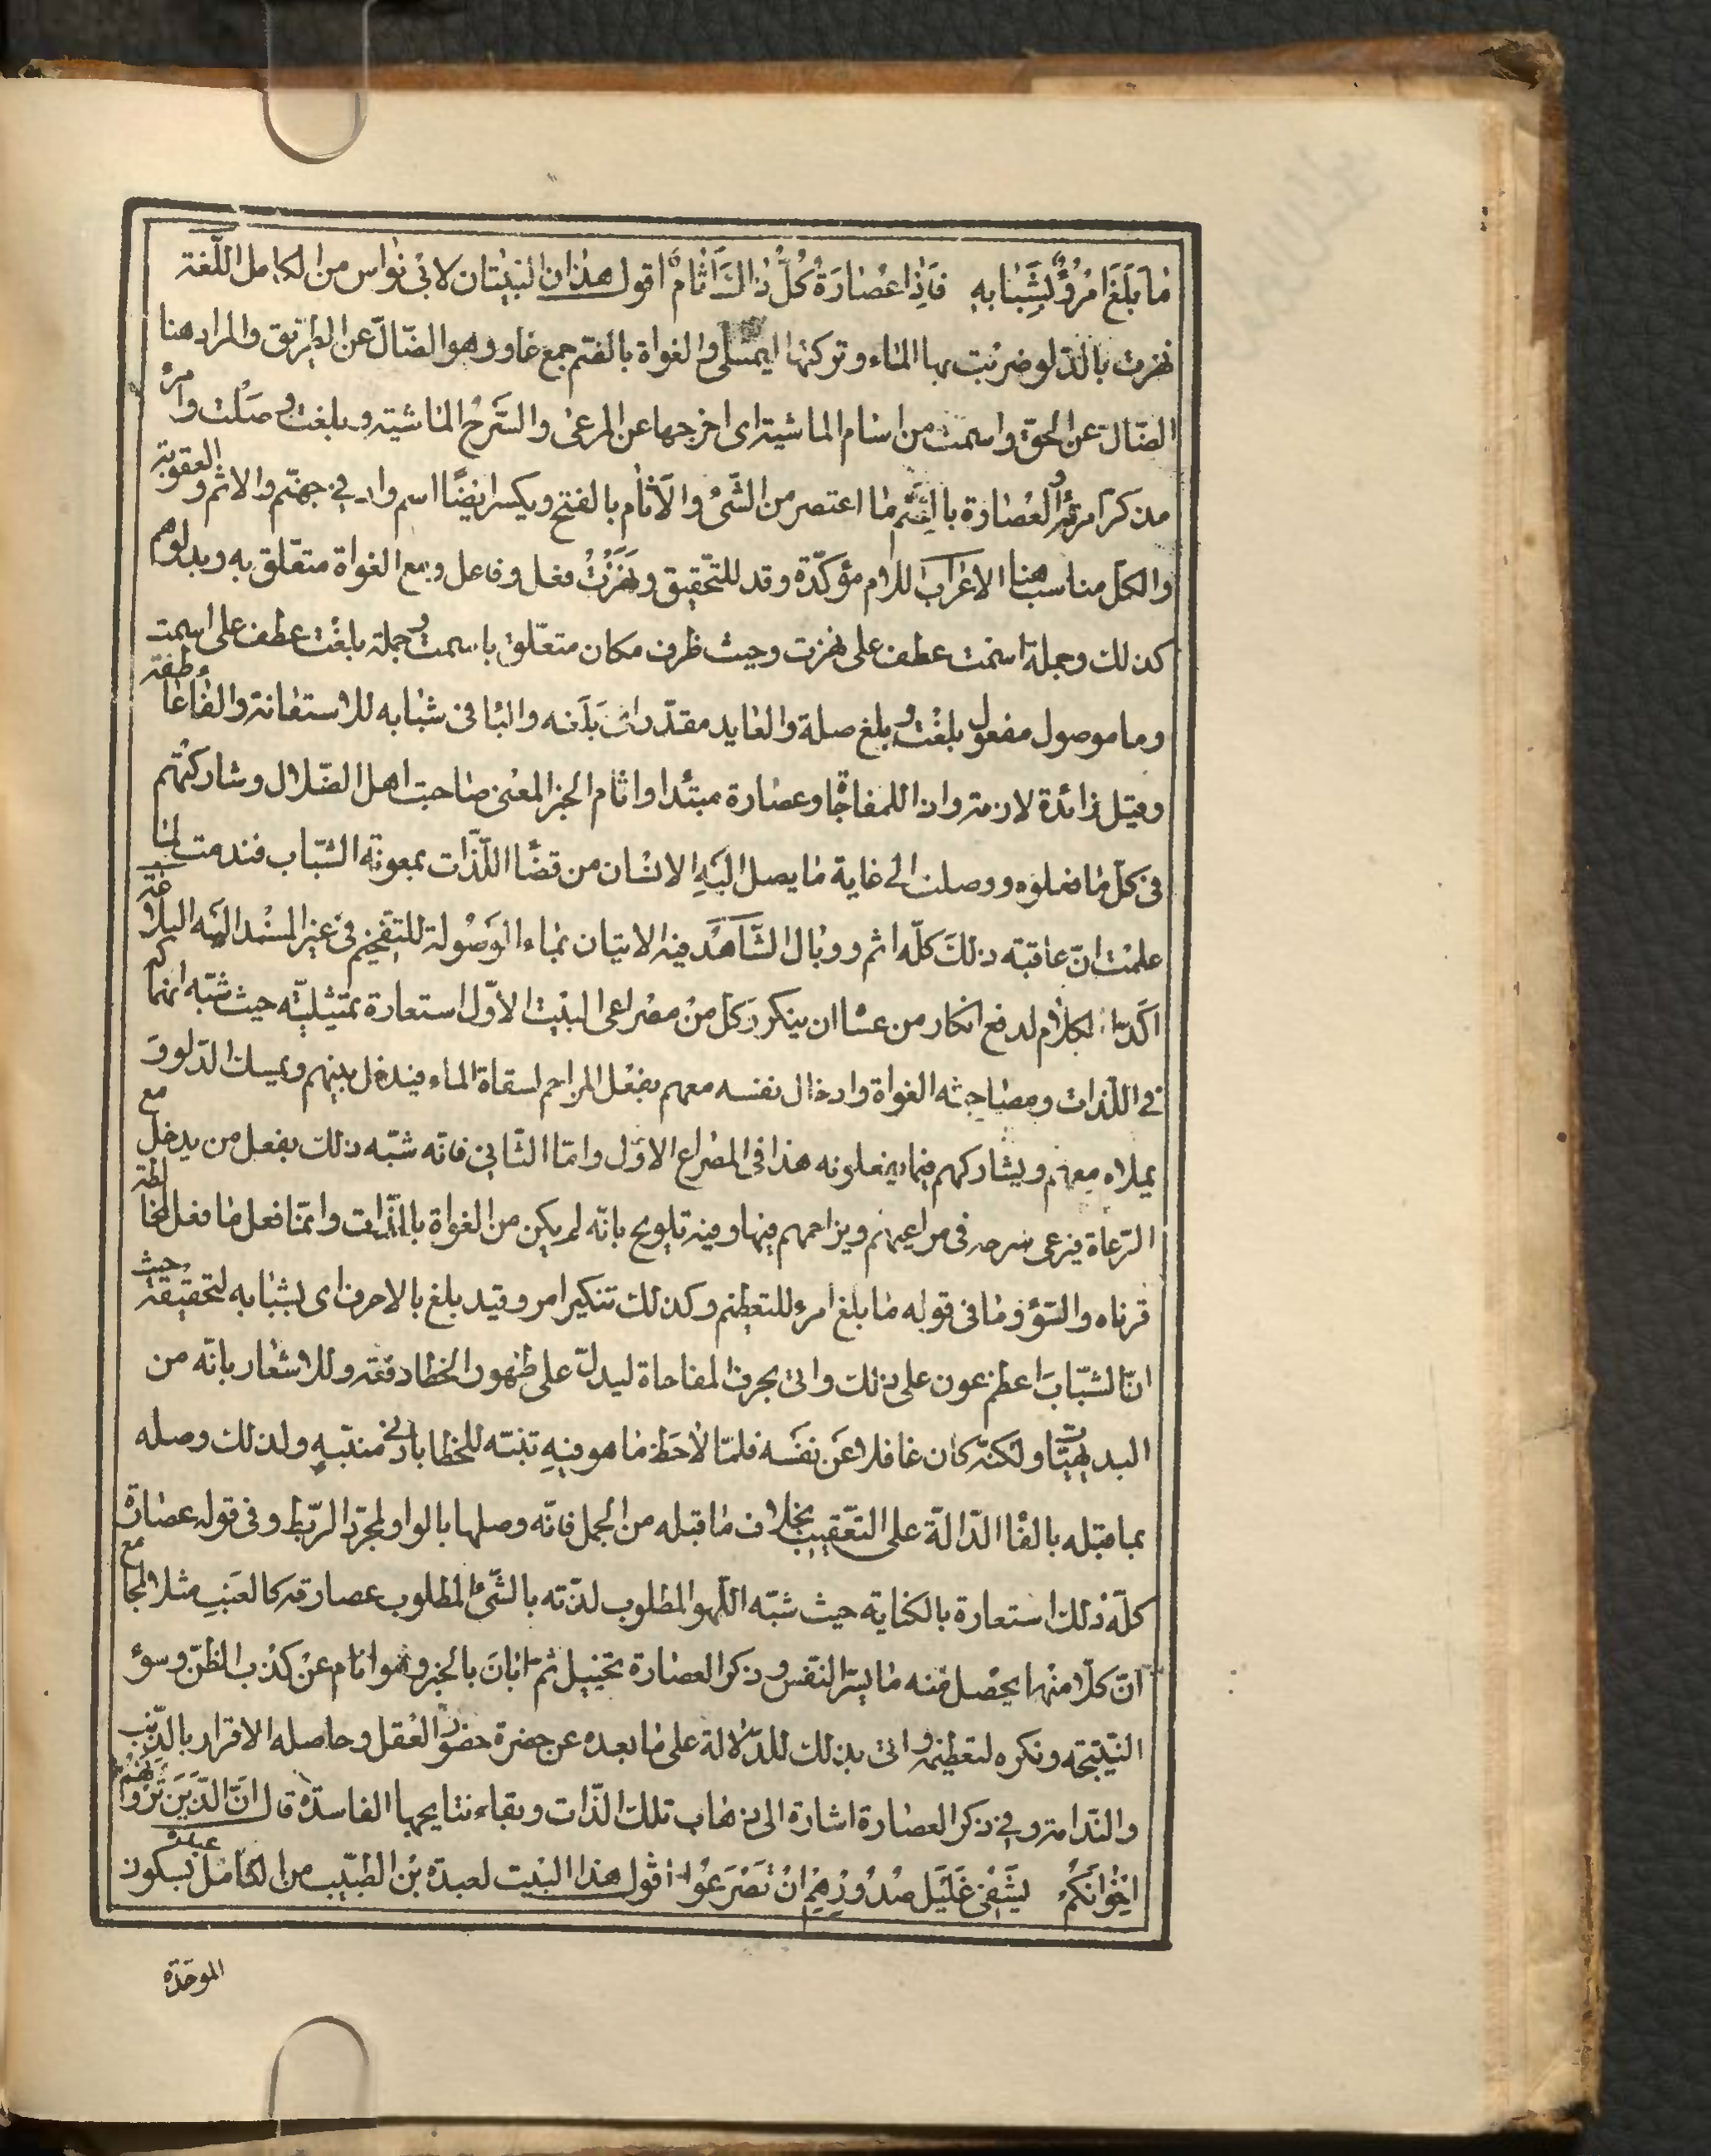 مَا بَلَغَ امْرُؤٌ بِشَبَابِهِ فَاِذَا عُصَارَةُ كُلِّ ذَاكَ اَثَامُ اقول هذان البيتان لابى نواس من الكامل اللّغة
نهزت بالدّلو ضربت بها الماء وتركتها ليمتلى والغواة بالضم جمع غاو وهو الضّالّ عن الطريق والمراد هنا
الضّالّ عن الحقّ واسمت من اسام الماشية اى اخرجها عن المرعى والسّرح الماشية وبلغت وصلت وامرء
مذكر امرئة والعصارة بالضّم ما اعتصر من الشّئ والاَثام بالفتح ويكسر ايضًا اسم واد فى جهنّم والاثم والعقوبة
والكلّ مناسب هنا الاعراب اللام مؤكّدة وقد للتّحقيق ونهزت فعل وفاعل ومع الغواة متعلّق به وبدلوهم
كذلك وجملة اسمت عطف على نهزت وحيث ظرف مكان متعلّق باسمت وجملة بلغت عطف على اسمت
وما موصول مفعول بلغت وبلغ صلة والعايد مقدّر اى بلغه والبا فى شبابه للاستعانة والفا عاطفة
وقيل زائدة لازمة واذا للمفاجاة وعصارة مبتدا واثام الخبر المعنى صاحبت اهل الضّلال وشاركتهم
فى كلّ ما فعلوه ووصلت الى غاية ما يصل اليه الانسان من قضا اللّذّات بمعونة الشّباب فندمت لما
علمت انّ عاقبة ذلك كلّه اثم ووبال الشّاهد فيه الاتيان بماء الموصولة للتفخيم فى غير المسند اليه البلاغة
اكّد الكلام لدفع انكار من عسا ان ينكر وكل من مصراعى البيت الاوّل استعارة تمثيليّه حيث شبّه انهماكه
فى اللّذات ومصاحبته الغواة وادخال نفسه معهم بفعل المزاحم لسقاة الماء فيدخل بينهم ويمسك الدّلو و
يملاه معهم ويشاركهم فيما يفعلونه هذا فى المصراع الاوّل وامّا الثّانى فانّه شبّه ذلك بفعل من يدخل مع
الرّعاة فيرعى سرحه فى مراعيهم ويزاحمهم فيها وفيه تلويح بانّه لم يكن من الغواة بالذّات وانّما فعل ما فعل لمخالطة
قرناه والسّؤ وما فى قوله ما بلغ امرء للتعظيم وكذلك تنكير امر وقيد بلغ بالاحرف اى بشبابه لتحقيقه حيث
انّ الشّبابَ اعظم عون على ذلك واتى بحرف المفاجاة ليدلّ على ظهور الخطا دفعة وللاشعار بانّه من
البديهيّات ولكنّه كان غافلا عن نفسه فلمّا لاحَظ ما هو فيهِ تنبّه للخطا بادنى منبّهٍ ولذلك وصله
بما قبله بالفا الدّالّة على التّعقيب بخلاف ما قبله من الجمل فانّه وصلها بالواو لمجرّد الرّبط وفى قوله عصارة
كلّه ذلك استعارة بالكناية حيث شبّه اللّهو المطلوب لذّته بالشّئ المطلوب عصارته كالعنب مثلا بجامع
انّ كلّا منهما يحصل منه ما يسّر النّفس وذكر العصارة تخييل ثم ابانَ بالخبر وهو اثام عن كذب الظّنّ وسوء
النّتيجه ونكره لتعظيمه واتى بذلك للدّلالة على ما بعده عن حضرة حضور العقل وحاصله الاقرار بالذّنب
والنّدامة وفى ذكر العصارة اشارة الى ذهاب تلك الذّات وبقاء نتايجها الفاسدة قال انَّ الَّذِينَ تَرَوْنَهُمْ
اِخْوَانَكُمْ يَشْفِى غَلِيلَ صُدُورِهِمْ اَنْ تُصْرَعُوا اقول هذا البيت لعبدة بن الطّبيب من الكامل عبدة بسكون
الموحّدة